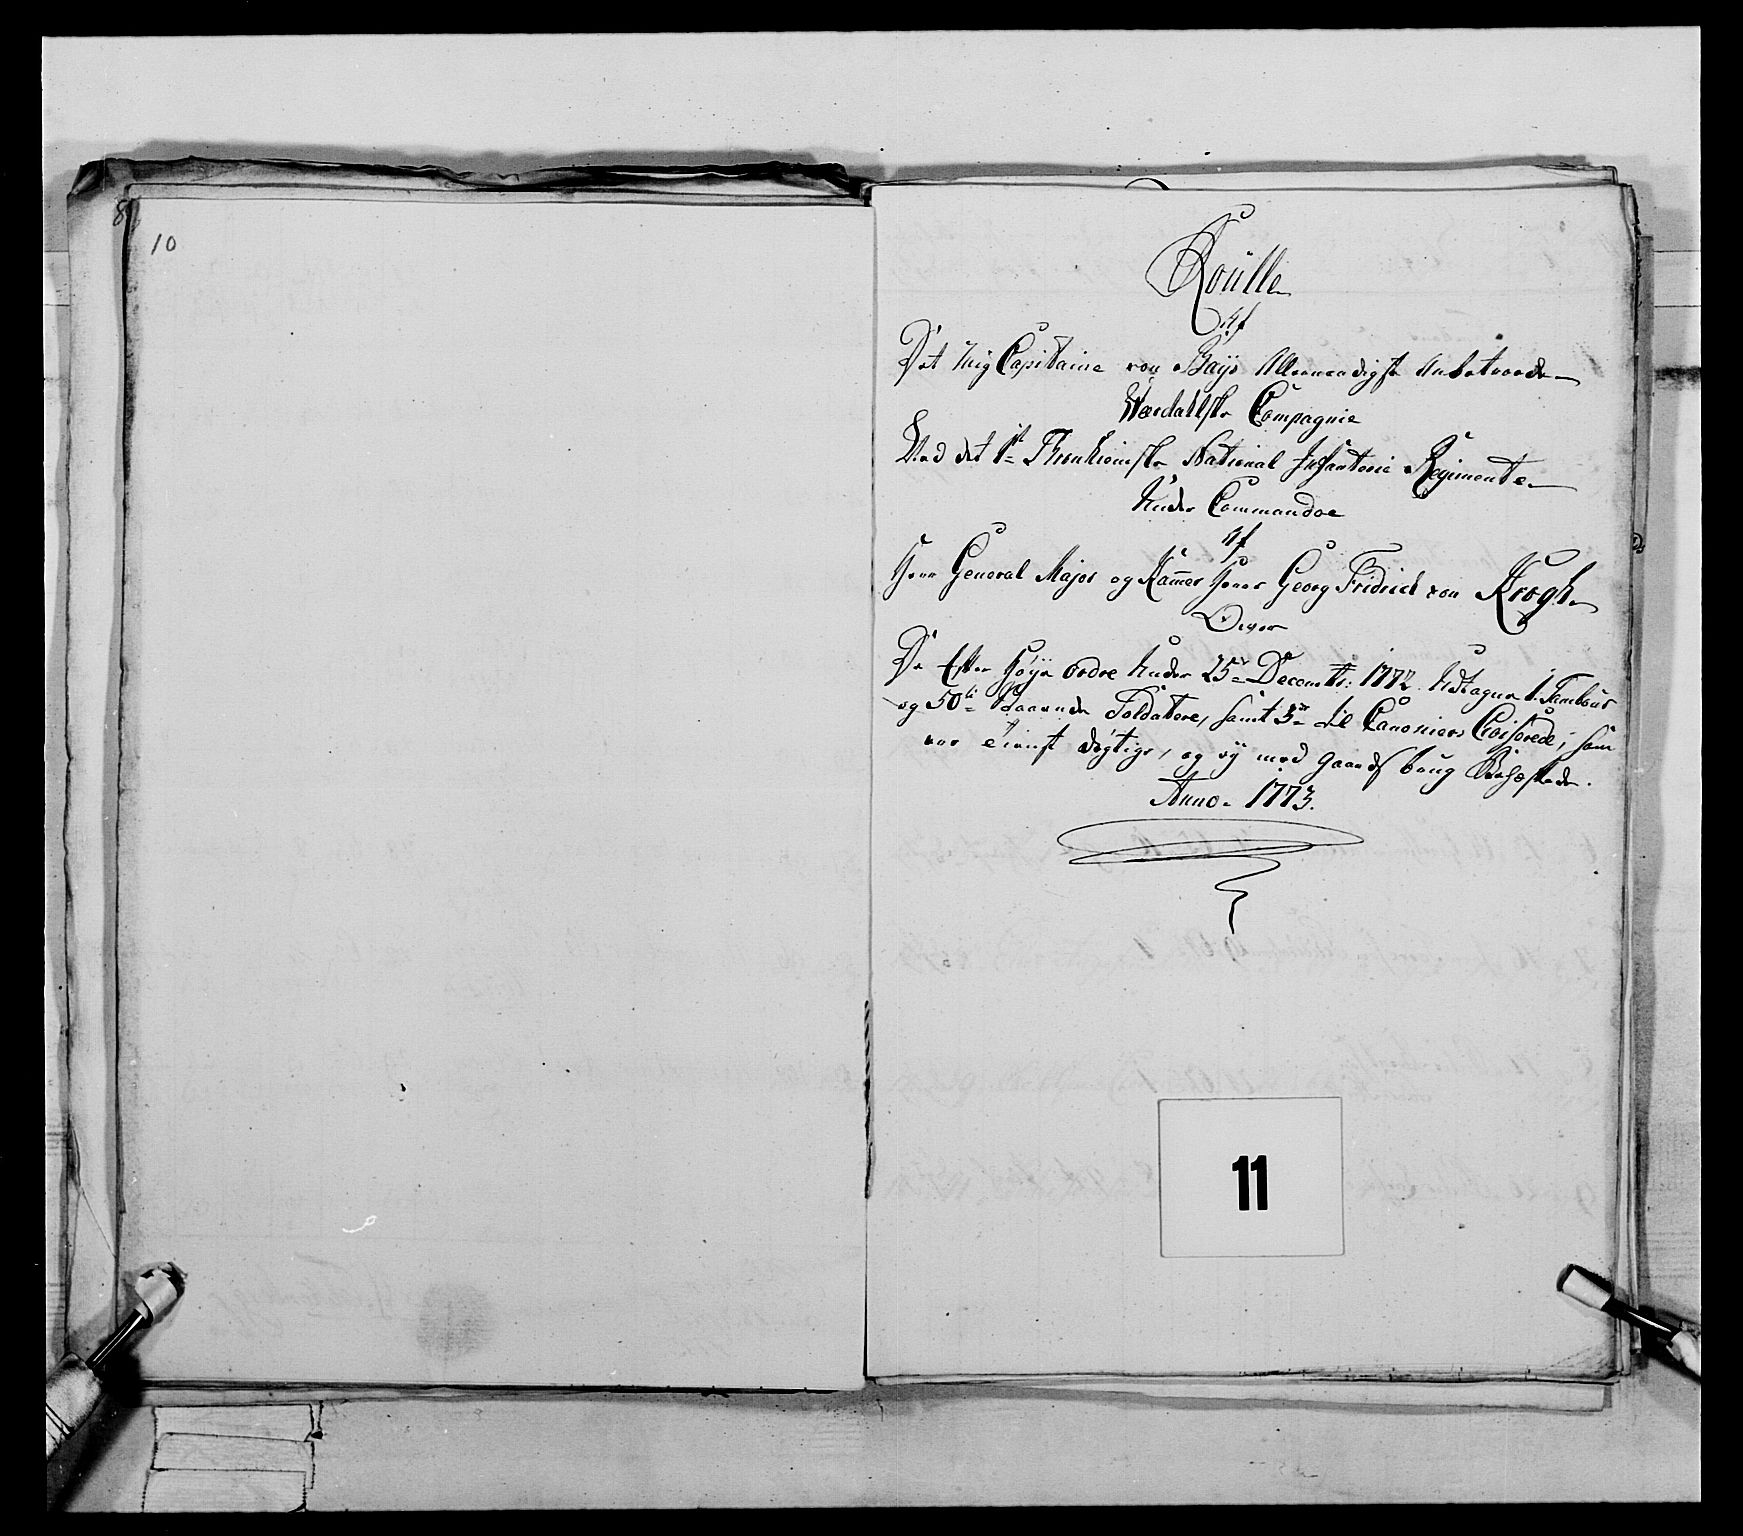 8
10
Roülle
Af
Det Mig Capitaine von Bays Allernaadigst Anbetroede
Wærdalske Compagnie
Ved det 1ste Tronhiemske National Infanterie Regimente
Under Commandoe
Af
Herr General Major og Kammer Herr Georg Fridrich von Krogh
Over
De Efter Høye Ordre Under 25de Decembr: 1772 Udtagne 1. Tambour
og 50ti Soldatere, samt 3de til Canonierer som
var tienst dygtige, og ey med Gaards brug
Anno 1773.
11